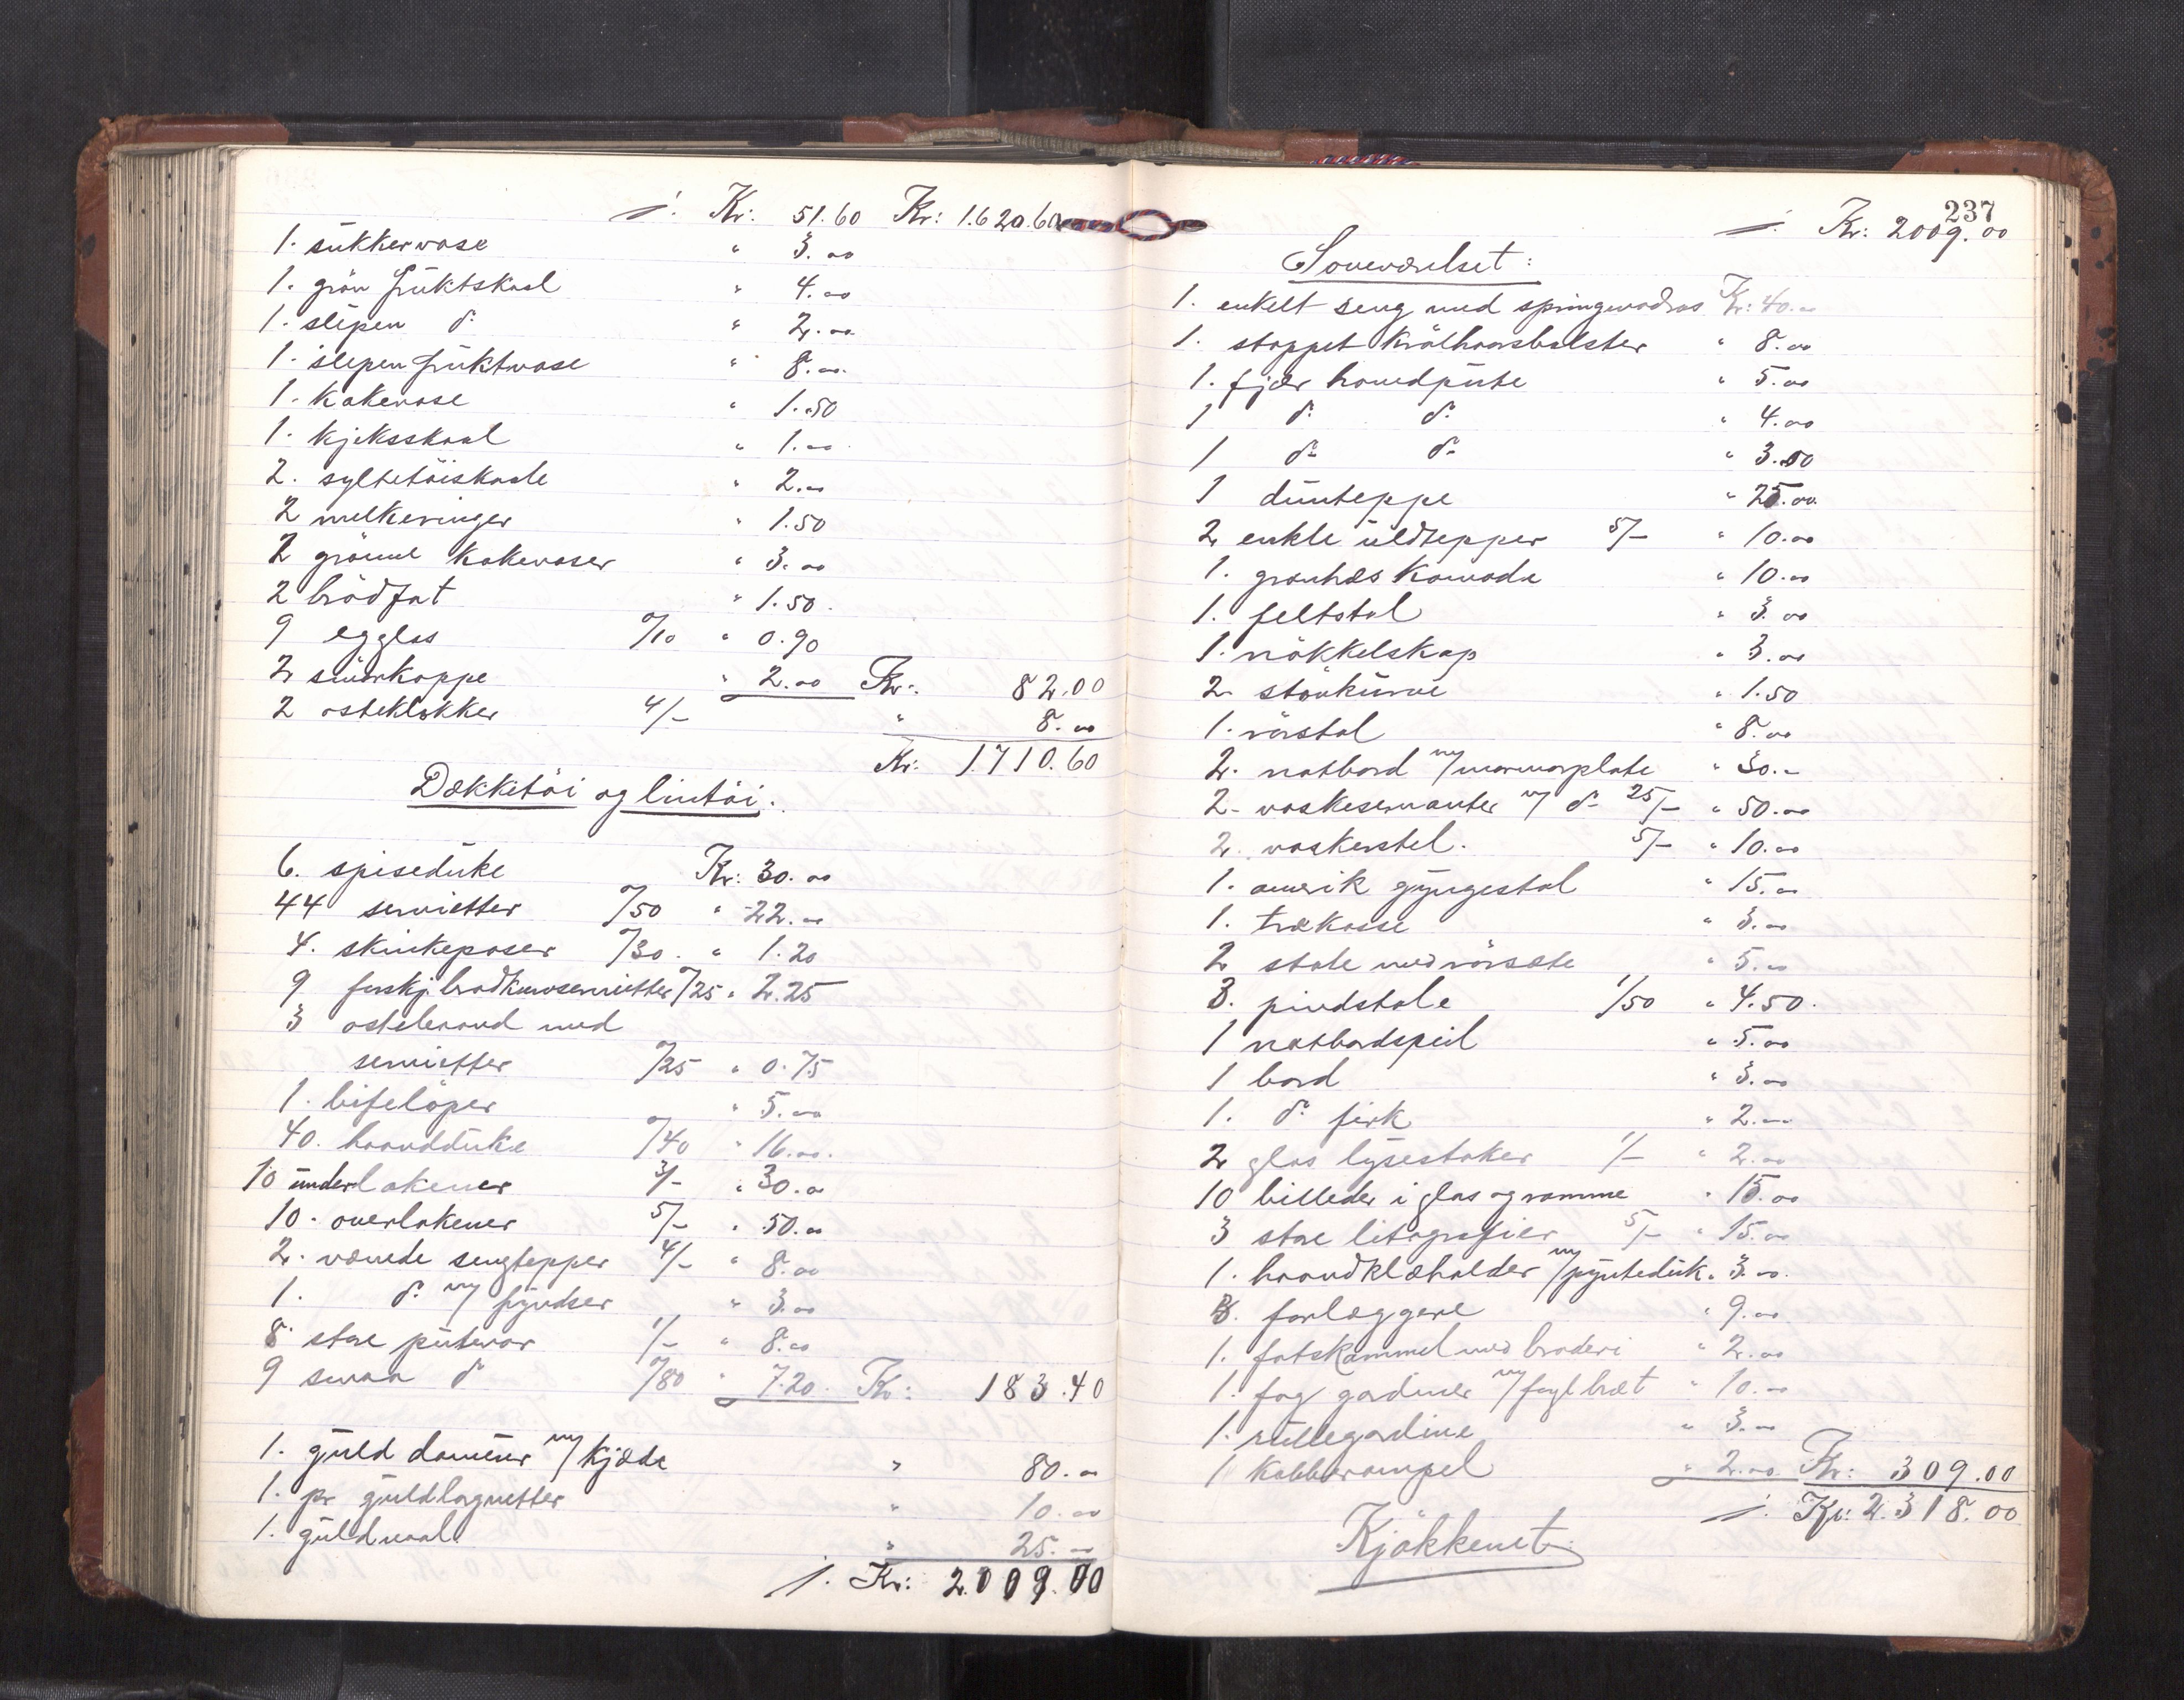 /. Kr: 51.60 Kr: 1.620.60
1. sukkervase " 3.00
1. grön fruktskaal " 4.00
1. slepen do " 2.00
1. slepen fruktvase " 8.00
1. Kakevase " 1.50
1. Kjeksskaal " 1.00
2. syltetöiskaale " 2.00
2 melkeringer " 1.50
2 grönne Kakevaser " 3.00
2 brödfat " 1.50
9 egglas 0/10 " 0.90
2 smörkoppe " 2.00 Kr: 82.00
2 osteklokker 4/- " 8.00
Kr: 1.710.60
Dækketöi og lintöi.
6. spiseduke Kr: 30.00
44 servietter 0/50 " 22.00
4. skinkeposer 0/30 " 1.20
9 forskj. brødkurvservietter 0/25 " 2.25
3 ostebrand med
servietter 0/25 " 0.75
1. bifelöper " 5.00
40. haandduke 0/40 " 16.00
10 underlakener 3/- " 30.00
10. overlakener 5/- " 50.00
2. vævede sengtepper 4/- " 8.00
1. do m/ fryndser " 3.00
8 store putevar 1/- " 8.00
9 smaa do 0/80 " 7.20 Kr: 183.40
1. guld dameur m/ Kjæde " 80.00
1. pr guldlorgnetter " 10.00
1. guldnaal " 25.00
/. Kr: 2.009.00
237
/. Kr: 2009.00
Soveværelset:
1. enkelt seng med springmadras Kr: 40.00
1. stoppet Krölhaarsbolster " 8.00
1. fjær hovedpute " 5.00
1 do do " 4.00
1 do do " 3.00
1 dunteppe " 25.00
2 enkle uldtepper 5/- " 10.00
1. granhæs Komode " 10.00
1. feltstol " 3.00
1. nökkelskap " 3.00
2. stövkurve " 1.50
1. rörstol " 8.00
2. natbord m/ marmorplate " 30.-
2. vaskeservanter m/ do 25/- " 50.00
2. vaskerstel. 5/- " 10.00
1. amerik gyngestol " 15.00
1. trækasse " 3.00
2 stole med rörsæte " 5.00
3. pindstole 1/50 " 4.50
1 natbordspeil " 5.00
1 bord " 3.00
1. do firk " 2.00
2 glas lysestaker 1/- " 2.00
10 billeder i glas og ramme " 15.00
3 store litografier 5/- " 15.00
1. haandklæholder m/ pynteduk " 3.00
3. forlæggere " 9.00
1. fotskammel med broderi " 2.00
1. fag gardiner m/ fuglbræt " 10.00
1. rullegardine " 3.00
1 Kobberampel " 2.00 Kr: 309.00
/. Kr: 2.318.00
Kjökkenet